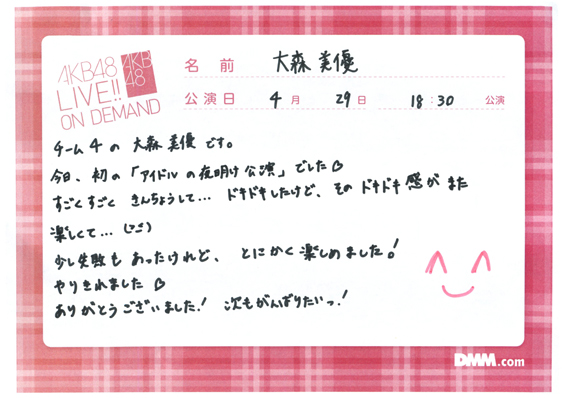 AKB48
LIVE!!
ON DEMAND
AKB
48
名前 大森美優
公演日 4月 29日 18:30 公演
チーム4の 大森美優です。
今日、初の「アイドルの夜明け公演」でした♡
すごくすごく きんちょうして… ドキドキしたけど、そのドキドキ感がまた
楽しくて…
少し失敗も あったけれど、 とにかく楽しめました!
やりきれました♡
ありがとうございました! 次もがんばりたいっ!
DMM.com